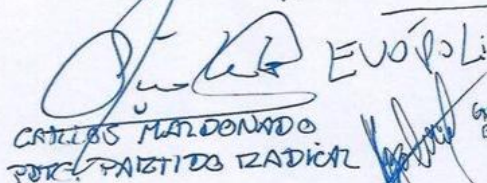 EVÓPOLI
CARLOS MALDONADO
PDTE. PARTIDO RADICAL